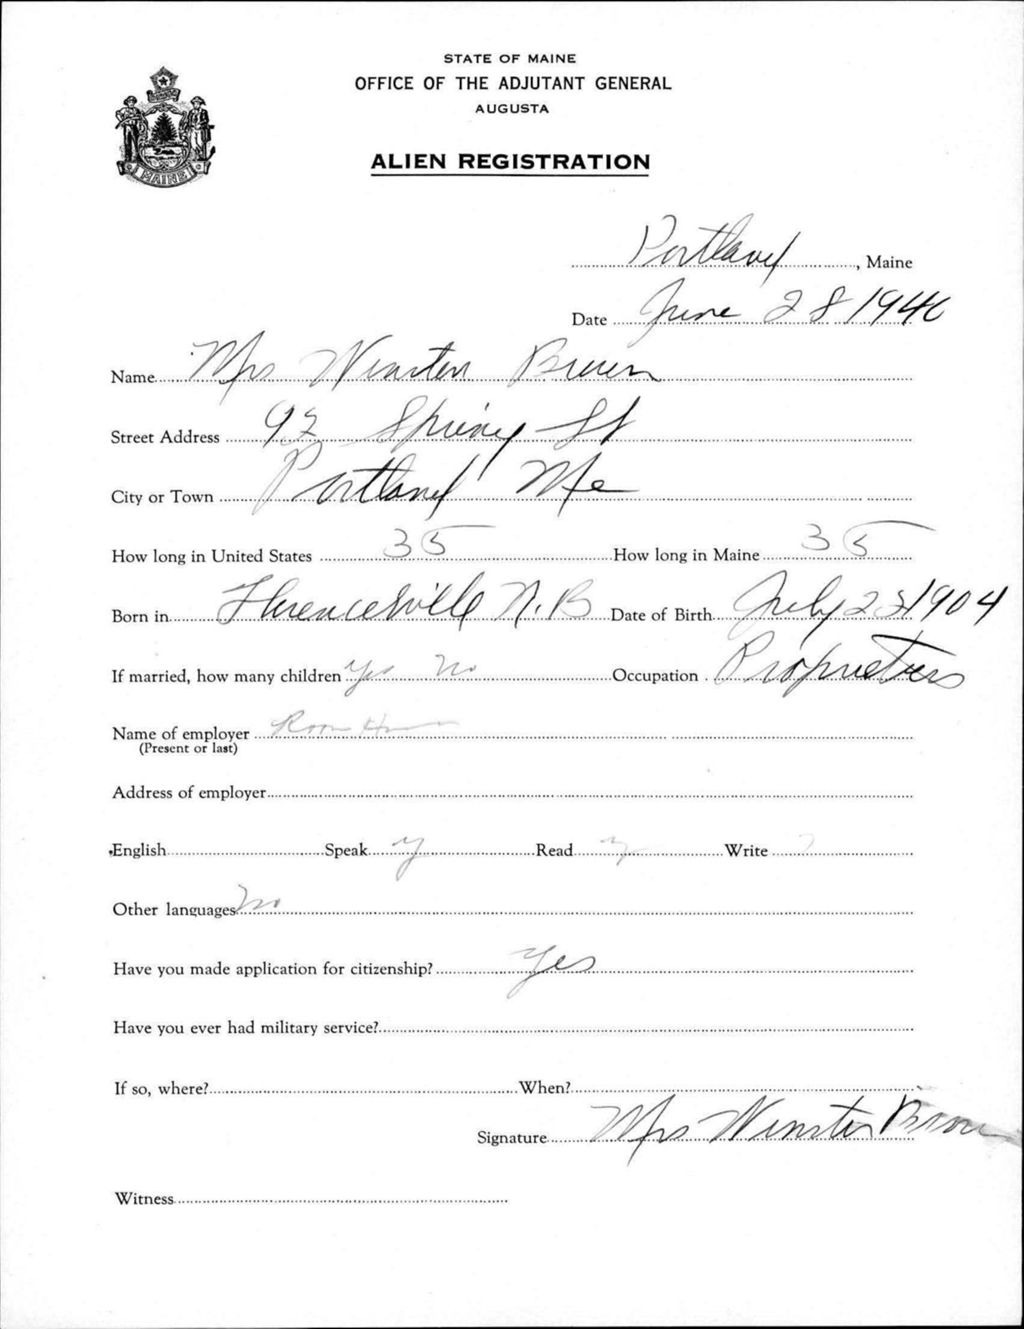 STATE OF MAINE
OFFICE OF THE ADJUTANT GENERAL
AUGUSTA
ALIEN REGISTRATION
MAINE
Portland, Maine
Date June 28 1940
Name Mrs Winston Brown
Street Address 92 Spring St
City or Town Portland Me
How long in United States 35 How long in Maine 35
Born in Florenceville N.B Date of Birth July 23 1904
If married, how many children Yes No Occupation Proprietress
Name of employer Room
(Present or last)
Address of employer
English Speak y Read y Write
Other languages No
Have you made application for citizenship? Yes
Have you ever had military service?
If so, where? When?
Signature Mrs Winston Brown
Witness